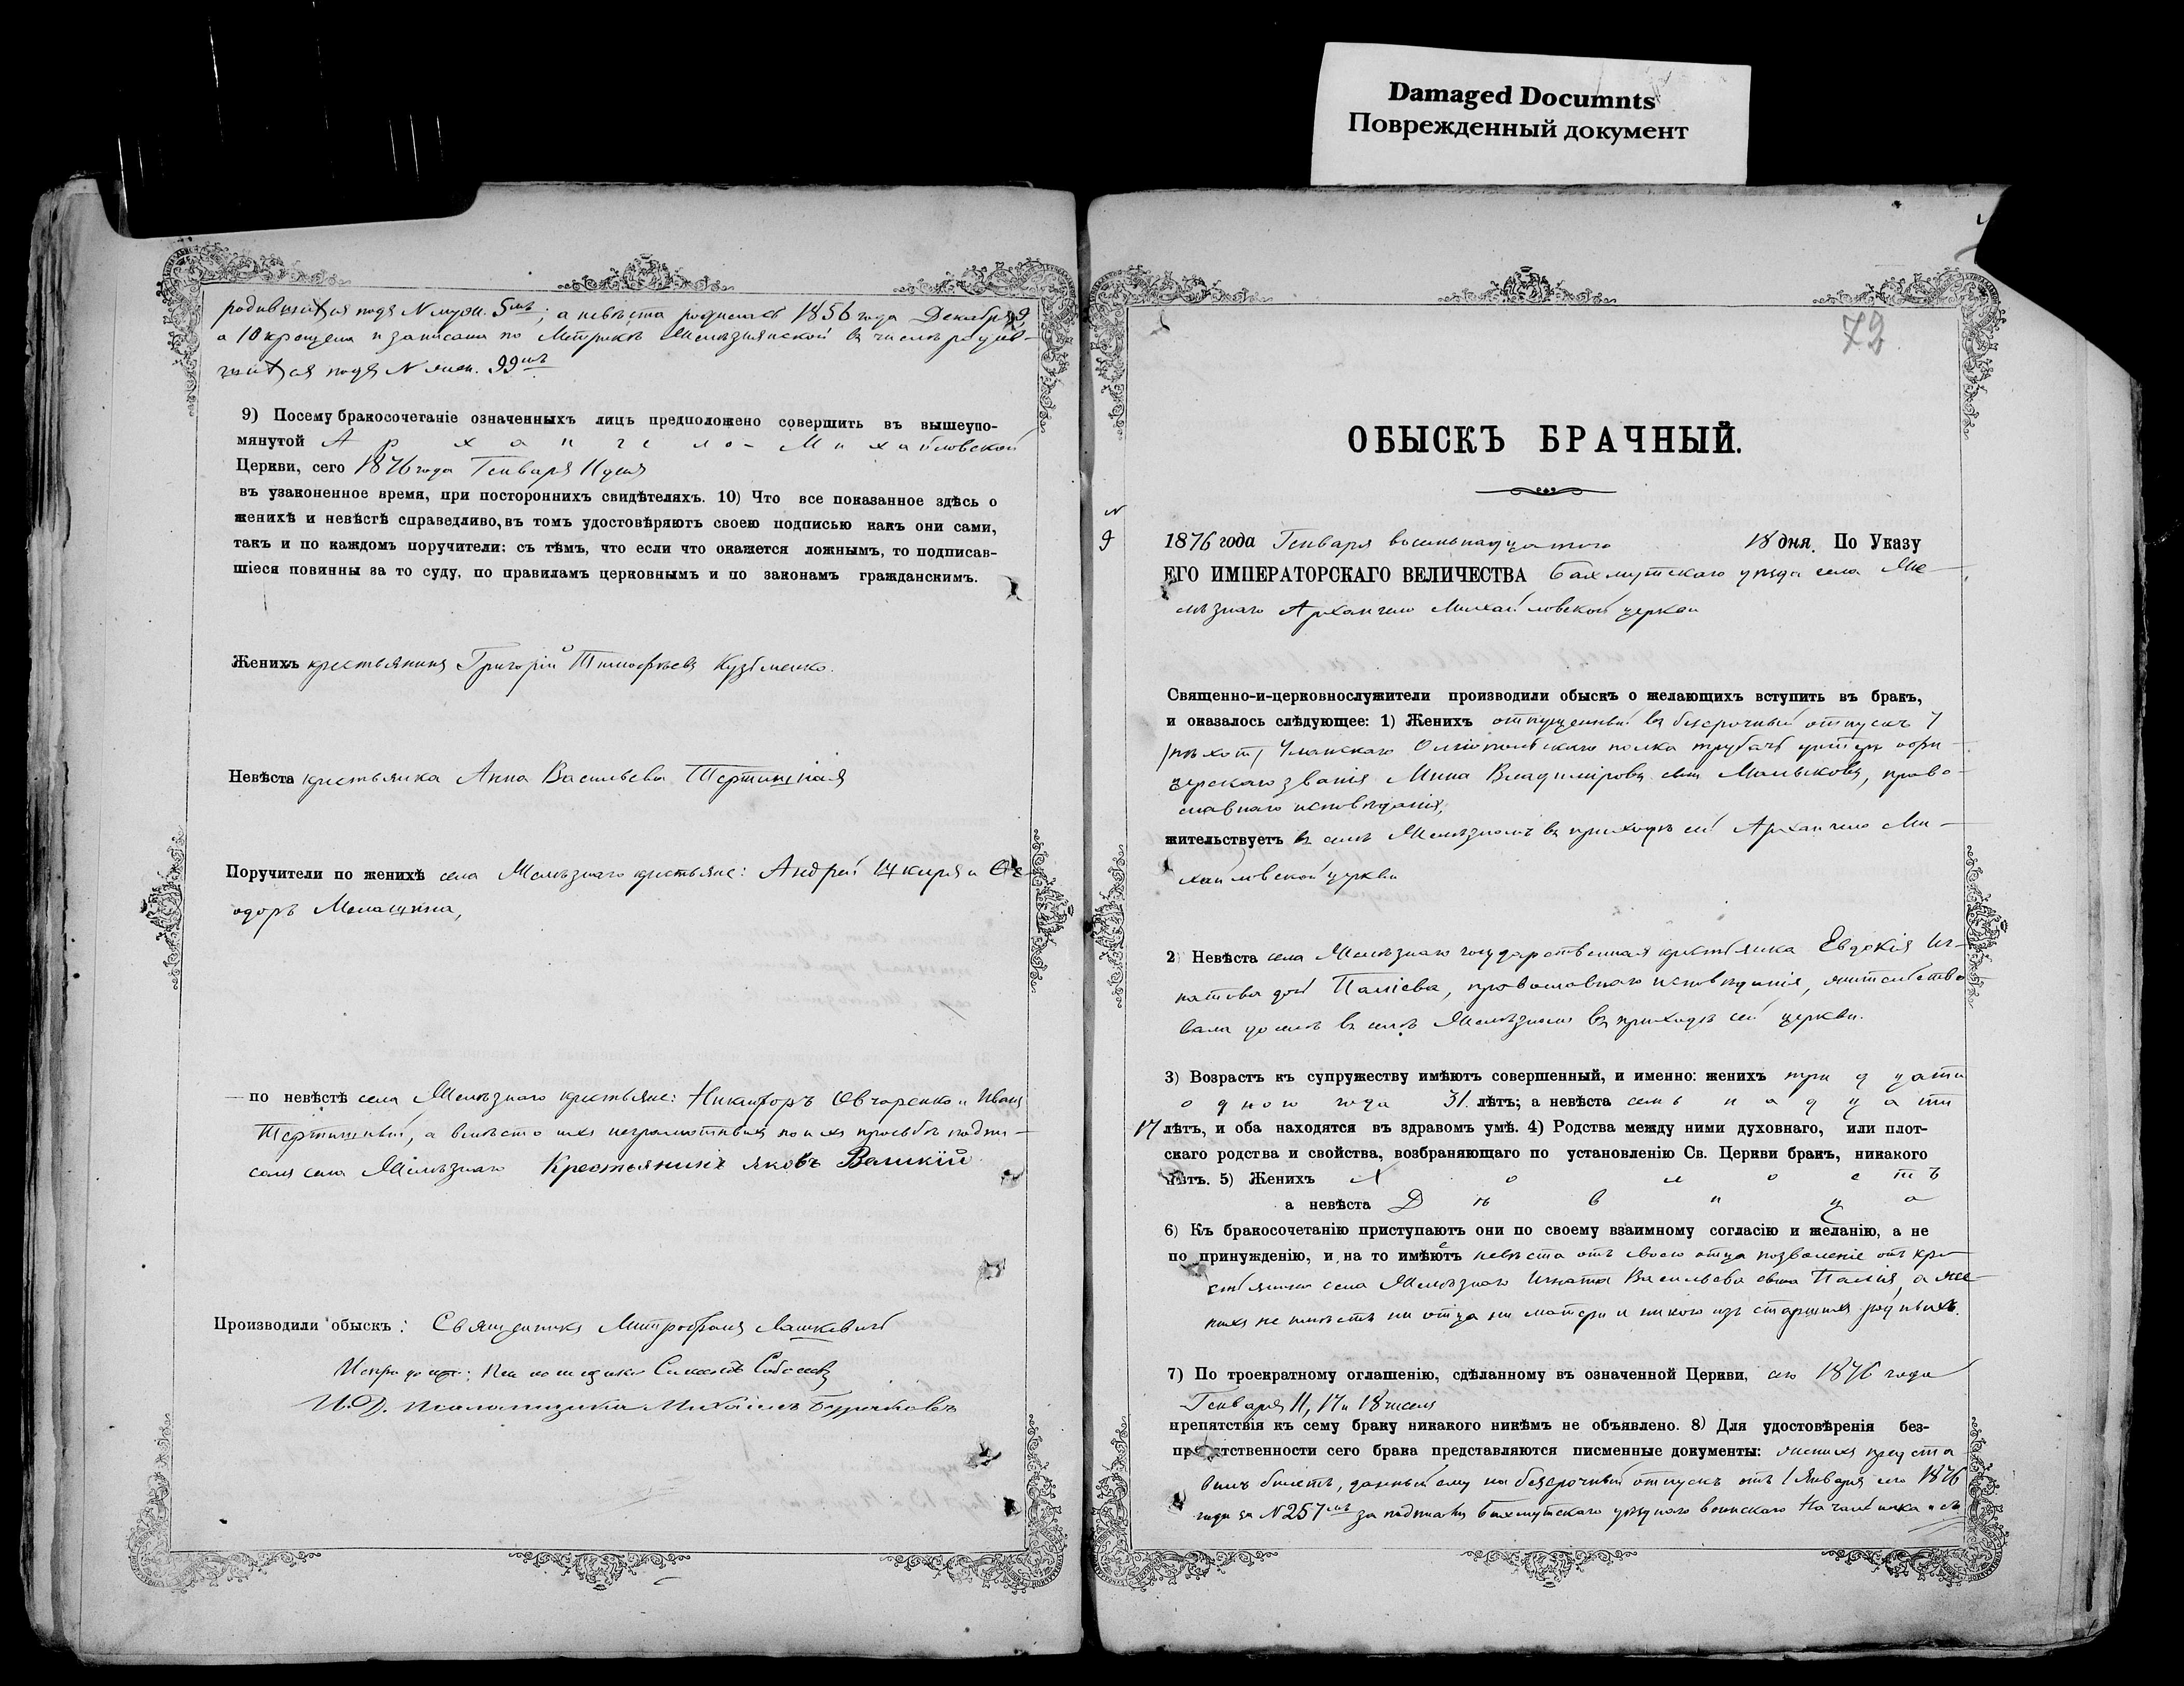 Damaged Documnts
Поврежденный документ
родившихся подъ N муж. 5мъ; а невѣста родилась 1856 года Декабря 9,
а 10 крещена и записана по Метрикѣ Желѣзнянской въ числѣ родив-
шихся подъ N жен. 99мъ
9) Посему бракосочетаніе означенныхъ лицъ предположено совершить въ вышеупо-
мянутой Архангело-Михайловской
Церкви, сего 1876 года Генваря 11 дня
въ узаконенное время, при постороннихъ свидѣтеляхъ. 10) Что все показанное здѣсь о
женихѣ и невѣстѣ справедливо, въ томъ удостовѣряютъ своею подписью какъ они сами,
такъ и по каждомъ поручители: съ тѣмъ, что если что окажется ложнымъ, то подписав-
шіеся повинны за то суду, по правиламъ церковнымъ и по законамъ гражданскимъ.
Женихъ крестьянинъ Григорій Тимофѣевъ Кузьменко.
Невѣста крестьянка Анна Васильева
Поручители по женихѣ села Желѣзнаго крестьяне: Андрей Шкиря и Ѳе-
одоръ
по невѣстѣ села Желѣзнаго крестьяне: Никифоръ Овчаренко и Иванъ
а вмѣсто ихъ неграмотныхъ по ихъ просьбѣ подпи-
сался села Желѣзнаго Крестьянинъ Яковъ Великій
Производили обыскъ: Священникъ Митрофанъ Лашкевичъ
Симеонъ
И.Д. псаломщика Михаилъ
72
ОБЫСКЪ БРАЧНЫЙ.
N
9 1876 года Генваря восемьнадцатого 18 дня. По Указу
ЕГО ИМПЕРАТОРСКАГО ВЕЛИЧЕСТВА Бахмутскаго уѣзда села Же-
лѣзнаго Архангело Михайловской церкви
Священно-и-церковнослужители производили обыскъ о желающихъ вступить въ бракъ,
и оказалось слѣдующее: 1) Женихъ отпущенный въ безсрочный отпускъ 7
Уланскаго Ольвіопольскаго полка трубачъ унтеръ офи-
церскаго званія Мина Владиміровъ сынъ Малыковъ, право-
славнаго исповѣданія,
жительствуетъ въ селѣ Желѣзномъ въ приходѣ сей Архангело Ми-
хайловской церкви
2) Невѣста села Желѣзнаго государственная крестьянка Евдокія Иг-
натова дочь Паліева, православнаго исповѣданія, жительство-
вала доселѣ въ селѣ Желѣзномъ въ приходѣ сей церкви.
3) Возрастъ къ супружеству имѣютъ совершенный, и именно: женихъ тридцати
одного года 31. лѣтъ; а невѣста семьнадцати
17 лѣтъ, и оба находятся въ здравомъ умѣ. 4) Родства между ними духовнаго, или плот-
скаго родства и свойства, возбраняющаго по установленію Св. Церкви бракъ, никакого
нѣтъ. 5) Женихъ Холостъ
а невѣста Дѣвица
6) Къ бракосочетанію приступаютъ они по своему взаимному согласію и желанію, а не
по принужденію, и на то имѣютъ невѣста отъ своего отца позволеніе отъ кре-
стьянина села Желѣзнаго Игната Васильева сына Палія, а же-
нихъ не имѣетъ ни отца ни матери и никого изъ старшихъ родныхъ.
7) По троекратному оглашенію, сдѣланному въ означенной Церкви, сего 1876 года
Генваря 11, 17 и 18 чиселъ
препятствія къ сему браку никакого никѣмъ не объявлено. 8) Для удостовѣренія без-
препятственности сего брака представляются писменные документы: женихъ предста-
вилъ билетъ, данный ему на безсрочный отпускъ отъ 1 Января сего 1876
года за N 257мъ за подписью Бахмутскаго уѣзднаго воинскаго Начальника и съ